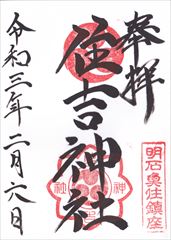 奉拝
住吉神社
明石魚住鎮座
令和三年二月六日